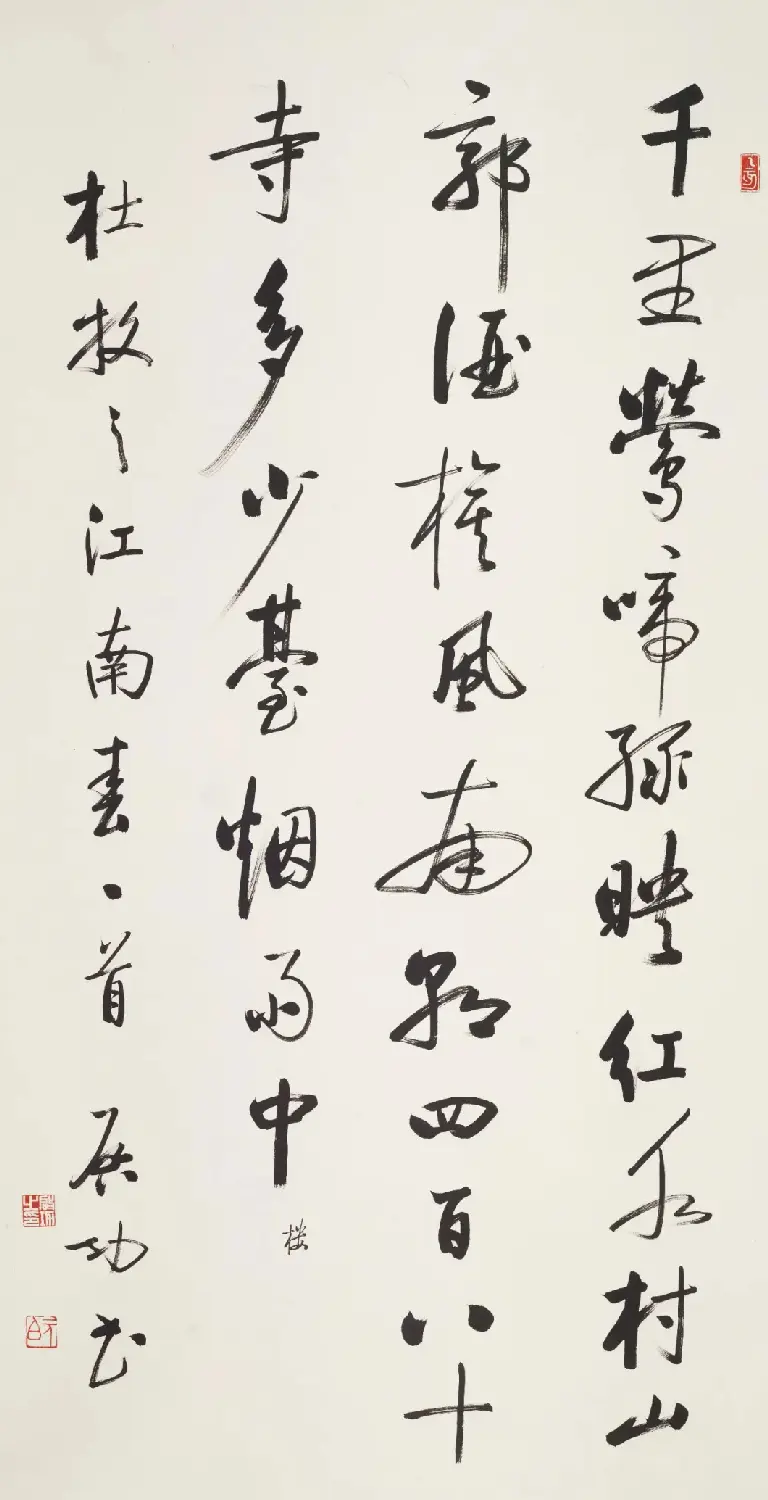 千里鶯啼綠映紅水村山
郭酒旗風南朝四百八十
寺多少臺烟雨中 楼
杜牧之江南春一首 启功书